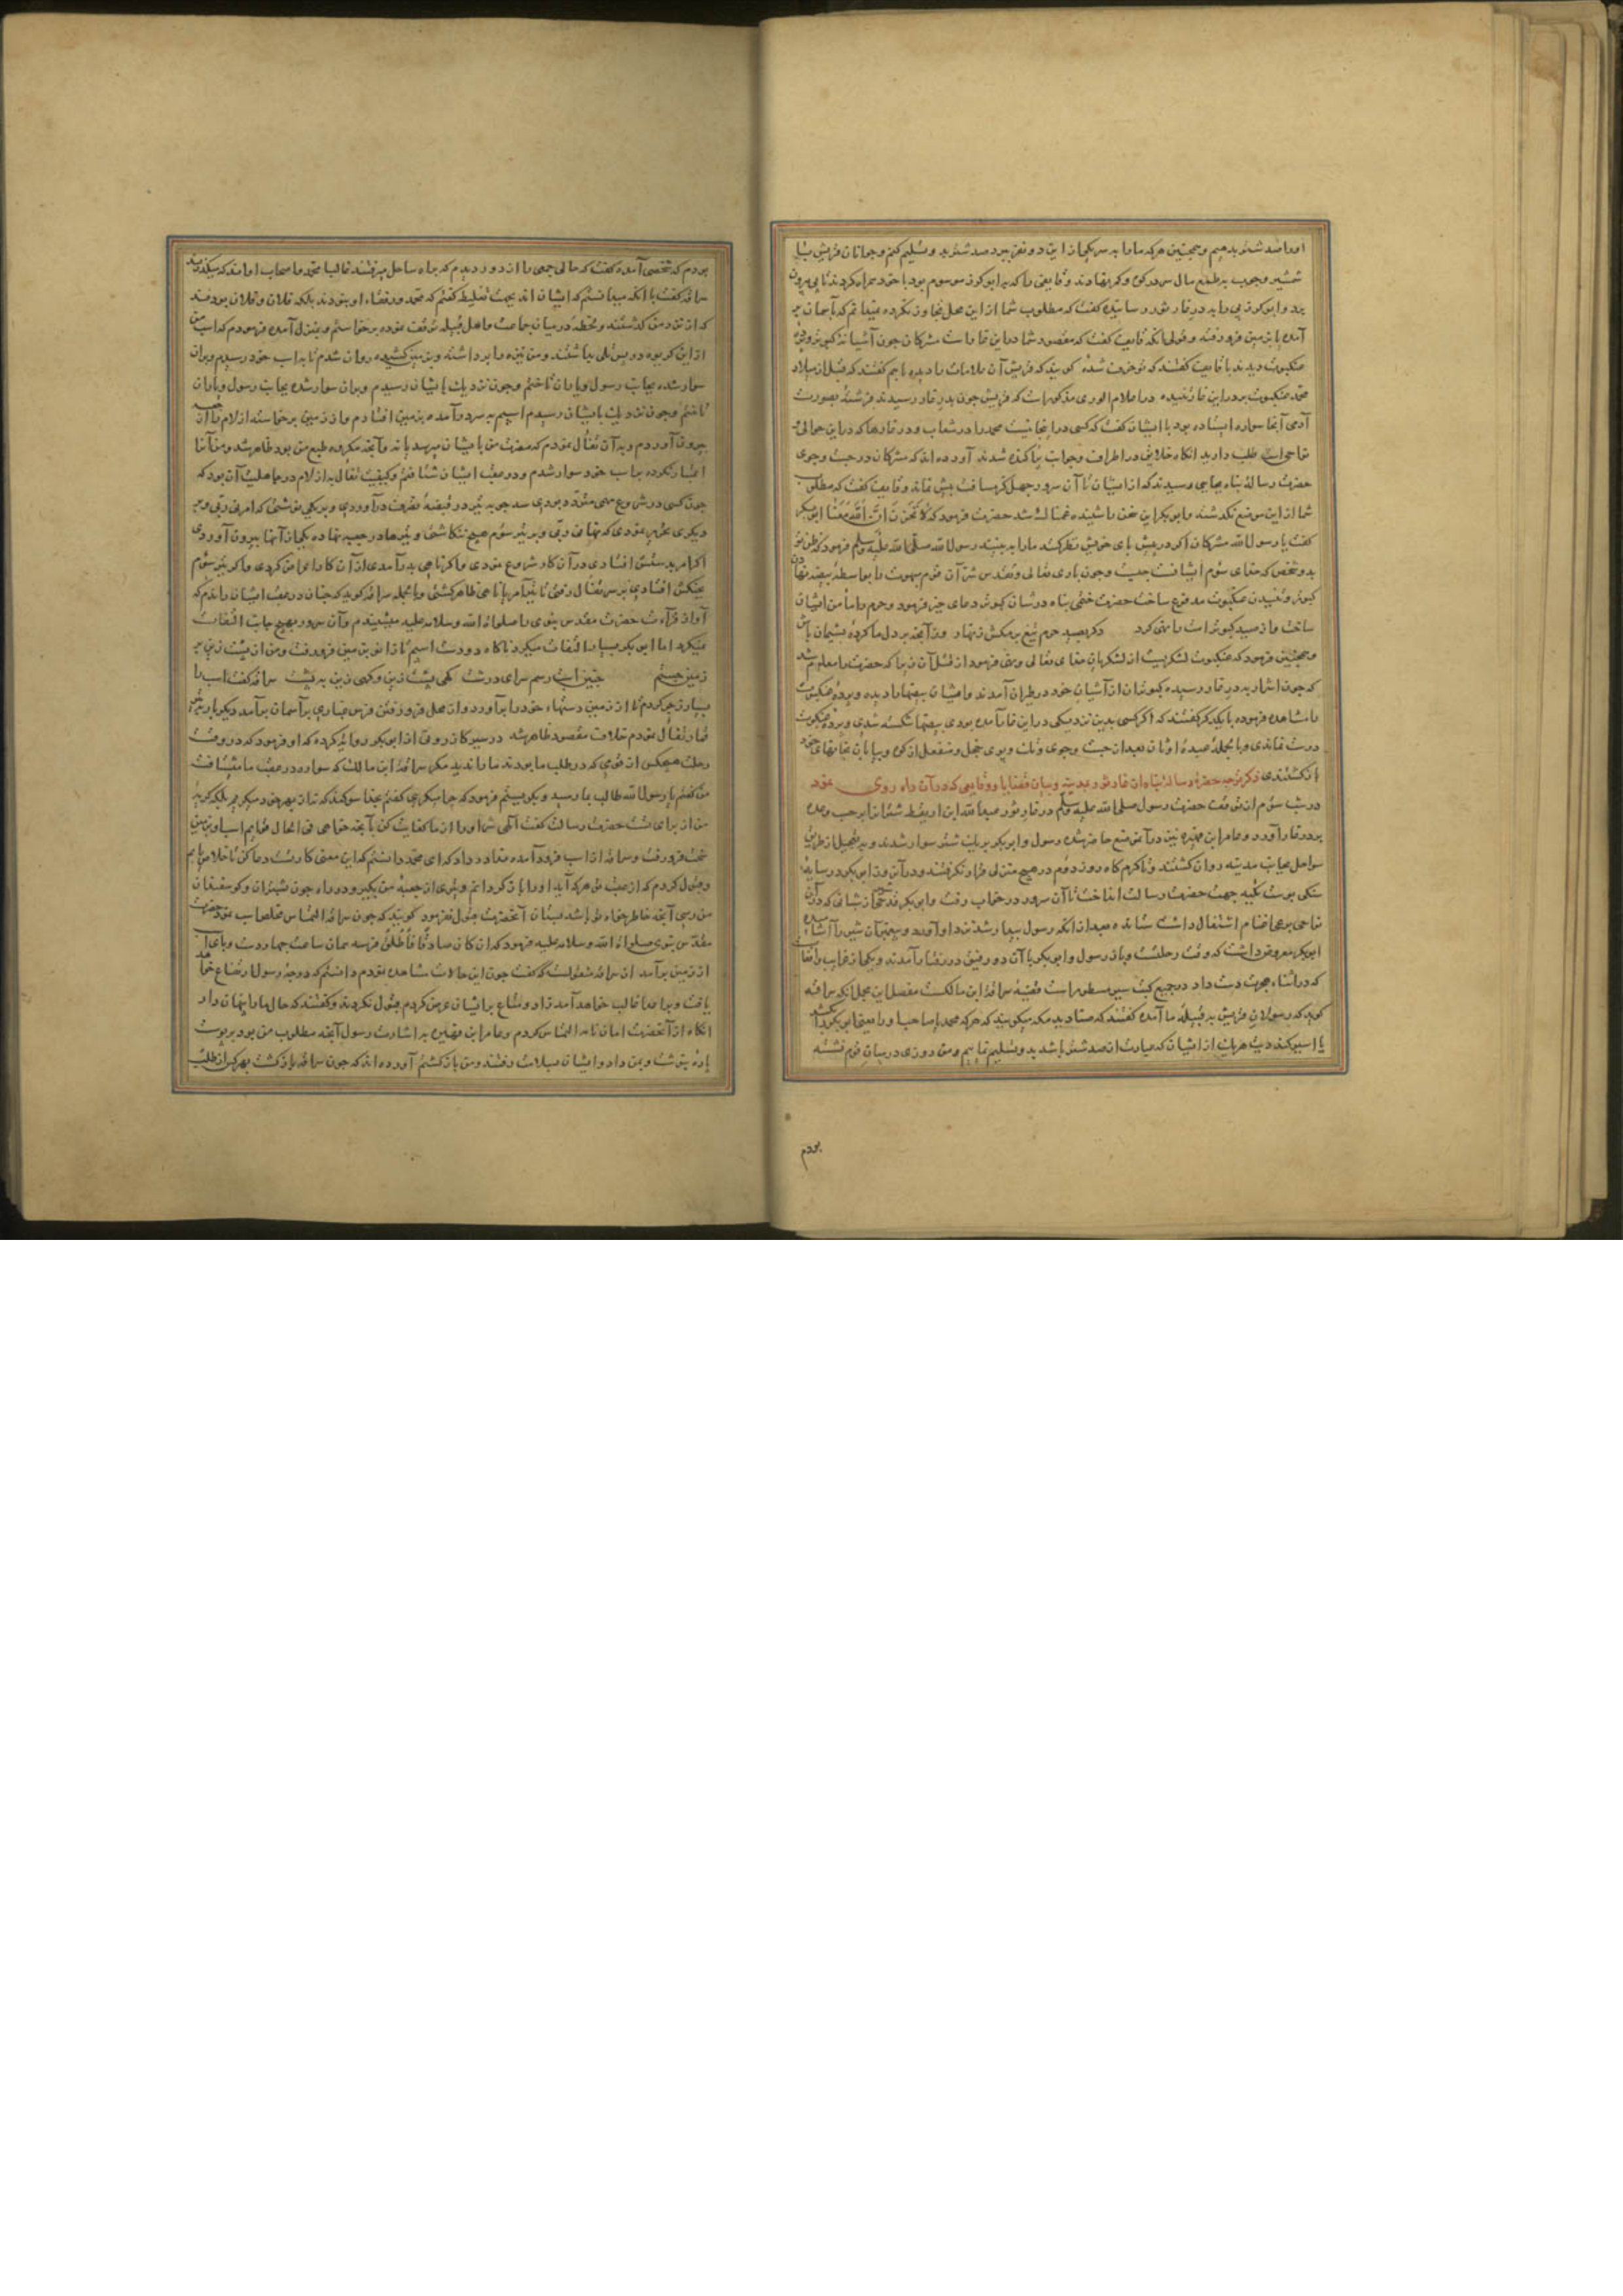 اورا صد شتر بدهیم و همچنین هرکه ما را به سر یکی از این دو نفر ببرد صد شتر بدو تسلیم کنیم و جوانان قریش با
شمشیر و چوب به طمع مال سر در کوه و کمر نهادند و قایفی را که به ابو کرز موسوم بود با خود همراه کردند تا پی بیرون
برد و ابو کرز پی را به در غار ثور رسانیده گفت که مطلوب شما از این محل تجاوز نکرده نمیدانم که بآسمان بر
آمده یا بزمین فرو رفته و قولی آنکه قایف گفت که مقصود شما در این غار است مشرکان چون آشیانه کبوتر و
عنکبوت دیدند با قایف گفتند که تو خرف شده گویند که قریش آن علامات را دیده با هم گفتند که قبل از میلاد
محمد عنکبوت بر در این غار تنیده در اعلام الوری مذکور است که قریش چون بدر غار رسیدند فرشته بصورت
آدمی آنجا سواره ایستاده بود با ایشان گفت که کسی در اینجا نیست محمد را در شعاب و در غارها که در این حوالی
نواحی است طلب دارید آنگاه خلایق در اطراف و جوانب پراکنده شدند آورده اند که مشرکان در جست و جوی
حضرت رسالت پناه بجایی رسیدند که از ایشان تا آن سرور چهل گز مسافت بیش نماند و قایف گفت که مطلوب
شما از این موضع نگذشته و ابو بکر این سخن را شنیده غمناک شد حضرت فرمود که لا تحزن ان الله معنا ابو بکر
گفت یا رسول الله مشرکان اگر در پیش پای خویش نظر کنند ما را ببینند رسول الله صلی الله علیه و سلم فرمود که ظن تو
بدو شخص که خدای سوم ایشانست چیست و چون باری تعالی و تقدس شر آن قوم را بواسطه بیضه نهادن
کبوتر و تنیدن عنکبوت مدفوع ساخت حضرت ختمی پناه در شان کبوتر دعای خیر فرمود و حرم را مأمن ایشان
ساخت و از صید کبوتر امت را نهی کرد دگر بصید حرم تیغ بر مکش زنهار وز آنچه بر دل ما کرده پشیمان باش
و همچنین فرمود که عنکبوت لشکریست از لشکریان خدای تعالی و نهی فرمود از قتل آن زیرا که حضرت را معلوم شد
که چون اشرار به در غار رسیده کبوتران از آشیان خود در طیران آمدند و ایشان بیضها را دیده و پرده عنکبوت
را مشاهده فرموده با یکدیگر گفتند که اگر کسی بدین نزدیکی در این غار آمده بودی بیضها شکسته شدی و پرده عنکبوت
درست نماندی و بالجمله عبده اوثان بعد از جست و جوی و تک و پوی خجل و منفعل از کوه و بیابان بخانهای خود
باز گشتندی ذکر توجه حضرت رسالت پناه از غار ثور بمدینه و بیان قضایا و وقایعی که در آن راه روی نمود
در شب سوم از توقف حضرت رسول صلی الله علیه و سلم در غار ثور عبدالله ابن اریقط شتران را بر حسب وعده
بر در غار آورد و عامر ابن فهیره نیز در آن موضع حاضر شده رسول و ابو بکر بر یک شتر سوار شدند و به تعجیل از طریق
سواحل بجانب مدینه روان گشتند و تا گرمگاه روز دوم در هیچ منزلی قرار نگرفتند و در آن روز ابو بکر در سایه
سنگی پوست تکیه جهت حضرت رسالت انداخت تا آن سرور در خواب رفت و ابو بکر قدحی از شبانی که در آن
نواحی برعی اغنام اشتغال داشت ستانده بعد از آنکه رسول بیدار شد نزد او آورد و پیغمبر آن شیر را آشامیده
ابو بکر معروض داشت که وقت رحلتست و باز رسول و ابو بکر با آن دو رفیق در رفتار آمدند و یکی از غرایب واقعات
که در اثناء هجرت دست داد و در جمیع کتب سیر مسطور است قضیه سراقة ابن مالکست مفصل این مجمل آنکه سراقه
گوید که رسولان قریش به قبیله ما آمده گفتند که صنادید مکه میگویند که هرکه محمد یا صاحب او را یعنی ابو بکر بکشد
یا اسیر کند دیت هر یک از ایشان که عبارت از صد شتر باشد بدو تسلیم نماییم و من روزی در میان قوم نشسته
بودم
بودم که شخصی آمده گفت که حالی جمعی را از دور دیدم که براه ساحل میرفتند غالبا محمد و اصحاب او اند که میگذرند
سراقه گفت با آنکه میدانستم که ایشان اند بجهت تغلیط گفتم که محمد و رفقاء او نبودند بلکه فلان و فلان بودند
که از نزد من گذشتند و لحظه در میان جماعت و اهل قبیله توقف نموده برخاستم و بمنزل آمده فرمودم که اسب من
از این کریوه در پس تلی بداشتند و من نیزه را برداشته و بر زمین کشیده روان شدم تا به اسب خود رسیدم و بر آن
سوار شده بجانب رسول و یاران تاختم و چون نزدیک بایشان رسیدم و بر آن سوار شده بجانب رسول و یاران
تاختم و چون نزدیک بایشان رسیدم اسبم بسر در آمده بزمین افتادم و از زمین برخاسته ازلام را از آن
بیرون آوردم و بدان تفأل نمودم که مضرت من بایشان میرسد یا نه و آنچه مکروه طبع من بود ظاهر شد و من آن را
اعتبار نکرده بر اسب خود سوار شدم و در عقب ایشان شتافتم و کیفیت تفأل به ازلام در جاهلیت آن بود که
چون کسی در شروع مهمی متردد بودی سه چوبه تیر در قبضه تصرف در آوردی و بر یکی نوشتی که امرنی ربی و بر
دیگری تحریر نمودی که نهانی ربی و بر تیر سوم هیچ ننگاشتی و تیرها در جعبه نهاده یکی از آنها بیرون آوردی
اگر امر بدستش افتادی در آن کار شروع نمودی و اگر ناهی بدر آمدی از آن کار اعراض کردی و اگر تیر سوم
بچنگش افتادی بر سر تفأل رفتی تا تیر آمر یا ناهی ظاهر گشتی و بالجمله سراقه گوید که چنان در عقب ایشان راندم که
آواز قراءت حضرت مقدس نبوی را صلوات الله و سلامه علیه میشنیدم و آن سرور بهیچ جانب التفات
نمیکرد اما ابو بکر بسیار التفات میکرد ناگاه دو دست اسبم تا زانو بزمین فرو رفت و من از پشت زین بر
زمین جستم چنین است رسم سرای درشت گهی پشت زین و گهی زین به پشت سراقه گفت اسب را
بسیار زجر کردم تا از زمین دستهاء خود را برآورد و از محل فرو رفتن فرس غباری بر آسمان برآمد دیگر بار بتیر
قمار تفأل نمودم خلاف مقصود ظاهر شد در سیر کازرونی از ابو بکر روایت کرده که او فرمود که در وقت
رحلت هیچکس از قومی که در طلب ما بودند ما را ندید مگر سراقة ابن مالک که سواره در عقب ما میشتافت
من گفتم یا رسول الله طالب ما رسید و بگریستم فرمود که چرا میگریی گفتم بخدا سوگند که نه از بهر خود میگریم بلکه گریه
من از برای تست حضرت رسالت گفت الهی شر او را از ما کفایت کن بآنچه خواهی فی الحال قوایم اسب او بزمین
سخت فرو رفت و سراقه از اسب فرود آمده ندا در داد که ای محمد دانستم که این معنی کار تست دعا کن تا خلاص یابم
و قبول کردم که از عقب تو هرکه آید او را باز گردانم و تیری از جعبه من بگیر و در راه چون بشتران و گوسفندان
من رسی آنچه خاطر خواه تو باشد بستان آنحضرت قبول نفرمود گویند که چون سراقه التماس خلاص اسب نمود حضرت
مقدس نبوی صلوات الله و سلامه علیه فرمود که ان کان صادقا فأطلق فرسه همان ساعت چهار دست و پای اسب
از زمین برآمد از سراقه منقولست که گفت چون این حالات مشاهده نمودم دانستم که درجه رسول ارتفاع خواهد
یافت و بر اعدا غالب خواهد آمد زاد و متاع بر ایشان عرض کردم قبول نکردند و گفتند که حال ما را پنهان دار
آنگاه از آنحضرت امان نامه التماس کردم و عامر ابن فهیره به اشارت رسول آنچه مطلوب من بود بر پوست
پاره نوشت و بمن داد و ایشان بسلامت رفتند و من باز گشتم آورده اند که چون سراقه باز گشت بهر کس از طلب